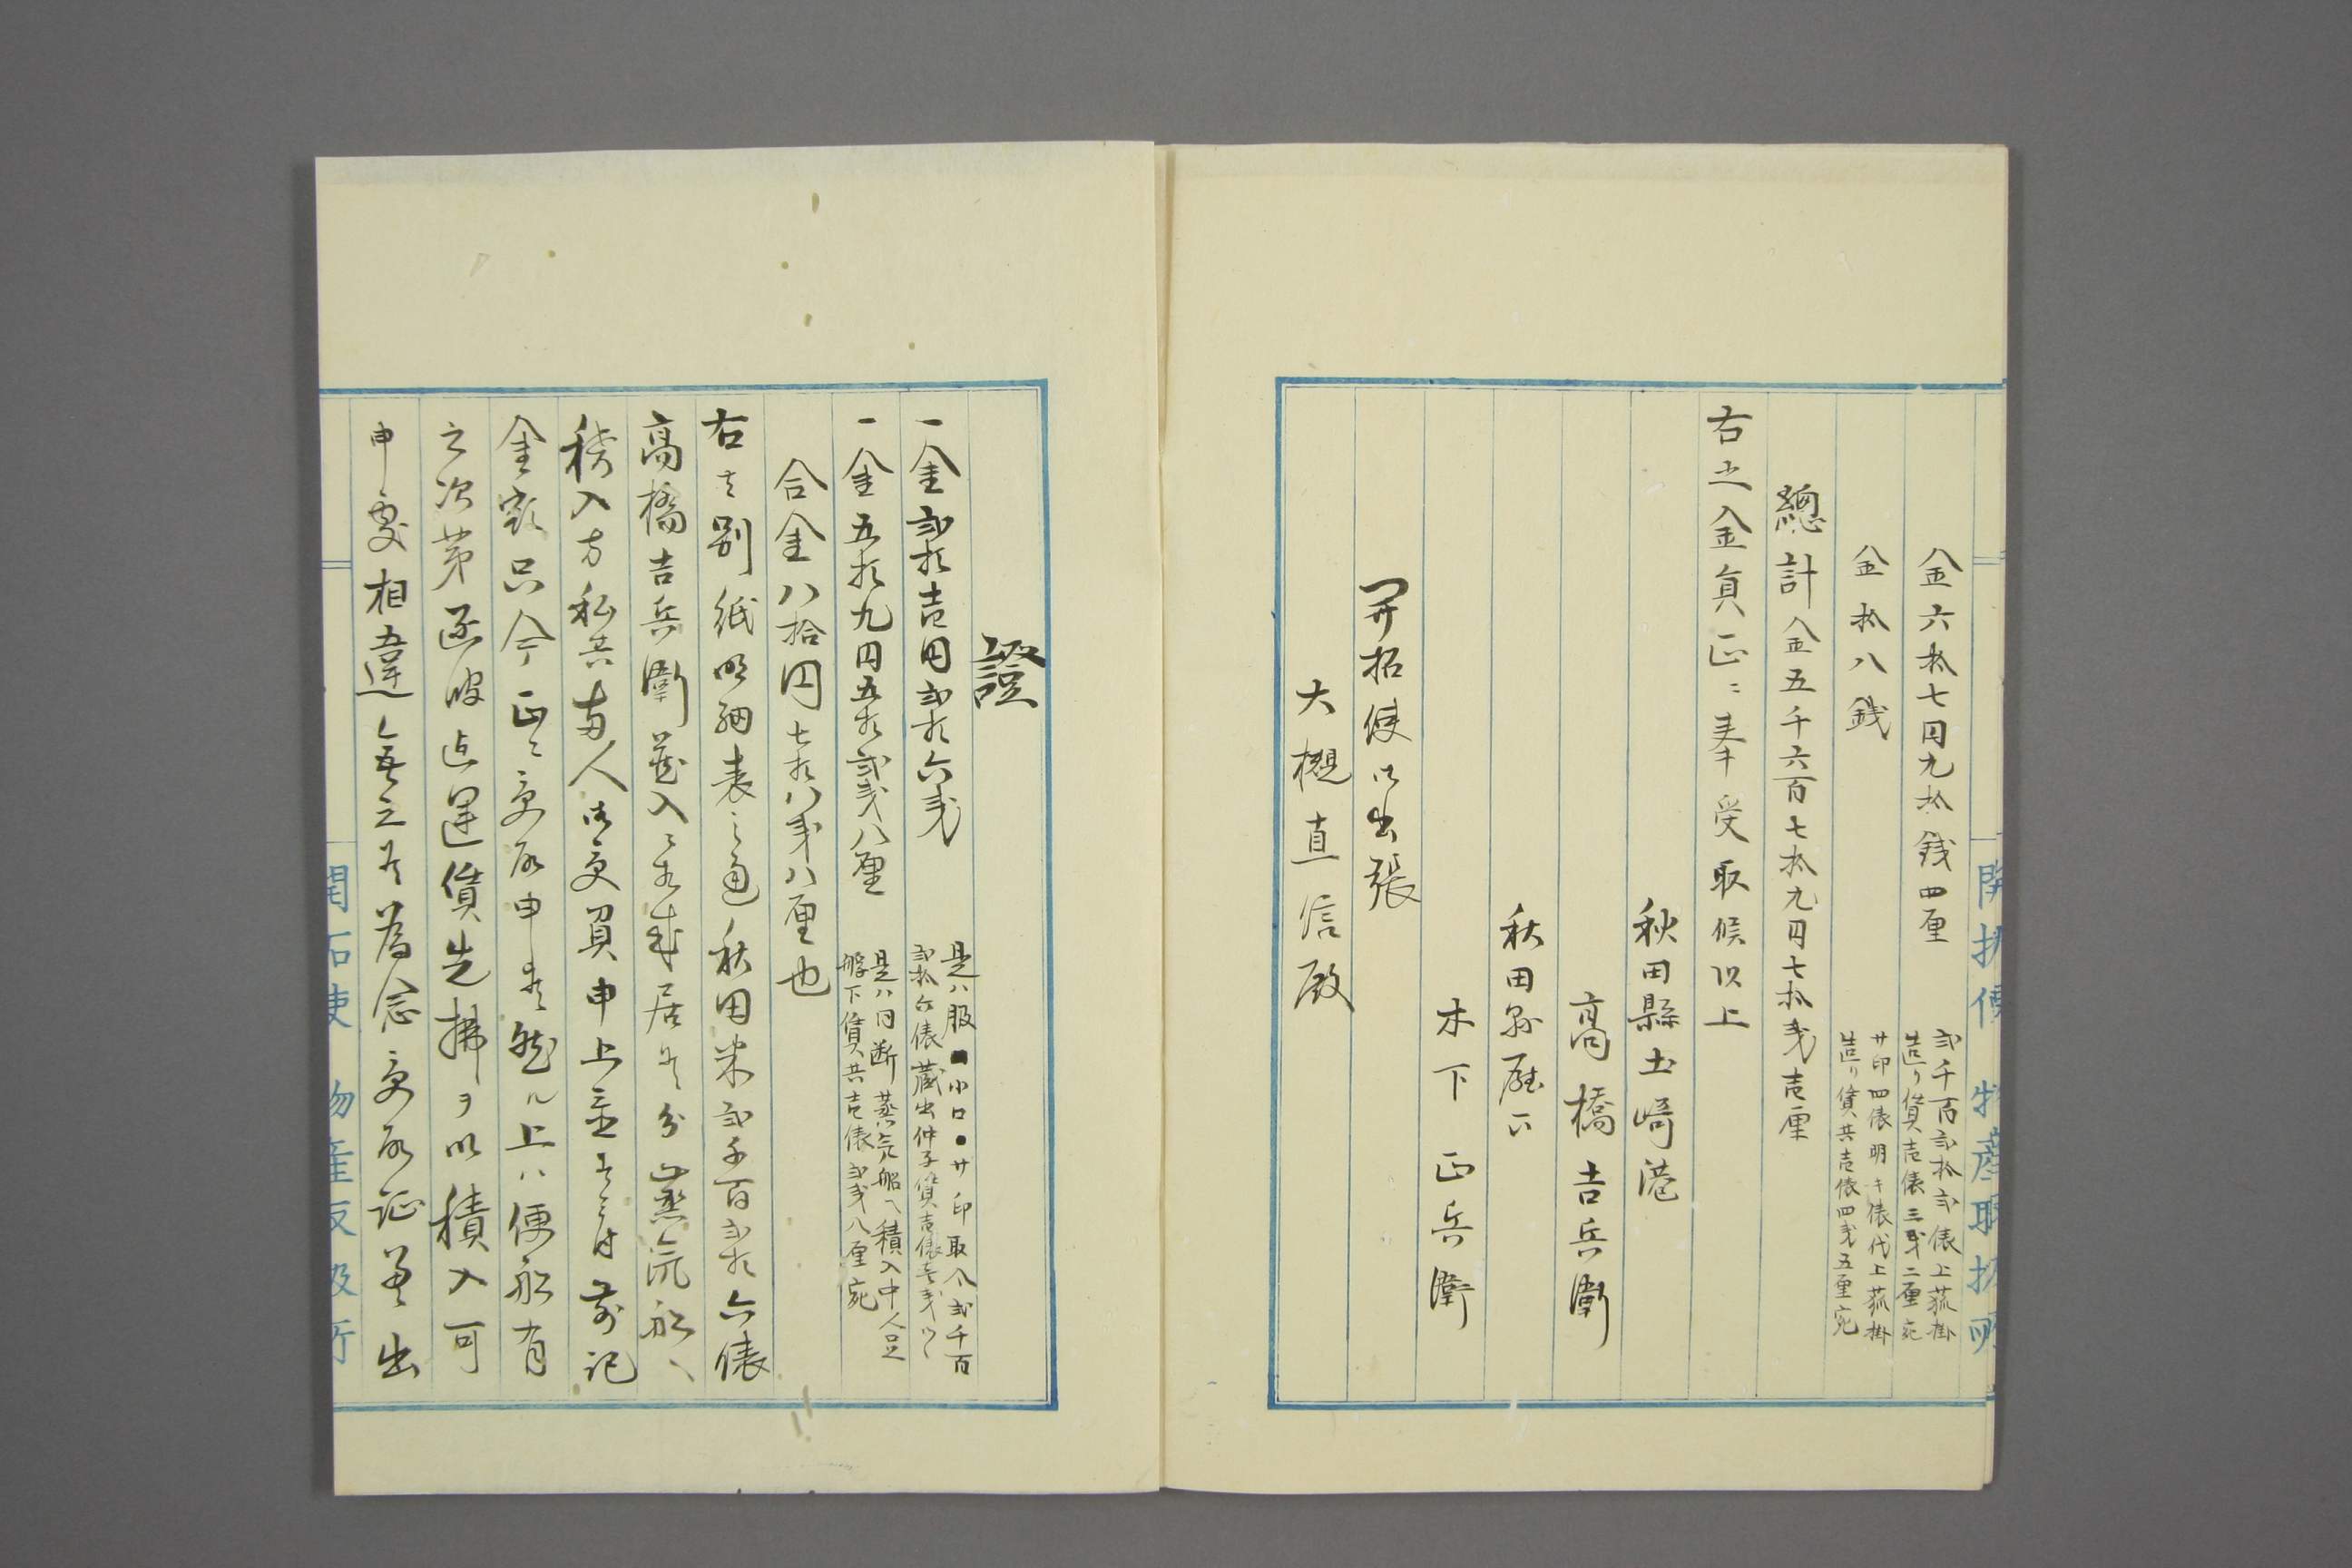 金六拾七円九拾銭四厘
弐千百弐拾弐俵上菰掛
造リ賃壱俵三戋二厘宛
金拾八銭
サ印四俵明キ俵代上菰掛
造リ賃共壱俵四戋五厘宛
總計金五千六百七拾九円七拾戋壱厘
右之金員正ニ奉受取候以上
秋田縣土崎港
高橋吉兵衛
秋田縣
木下正兵衛
開拓使御出張
大槻直信殿
開拓使 物産取扱所
證
一金弐拾壱円弐拾六戋
是ハ服■小口●サ印取合弐千百
弐拾六俵蔵出仲子賃壱俵壱戋ツヽ
一金五拾九円五拾弐戋八厘
是ハ同断蒸気船ヘ積入中人足
艀下賃共壱俵弐戋八厘宛
合金八拾円七拾八戋八厘也
右者別紙明細表之通秋田米弐千百弐拾六俵
高橋吉兵衛蔵入ニ相成居候分蒸気船ヘ
積入方私共両人御受負申上候ニ付前記
金額只今正ニ受取申候然ル上ハ便船有
之次第運賃先拂ヲ以積入可
申處相違無之候為念受取証差出
開拓使 物産取扱所